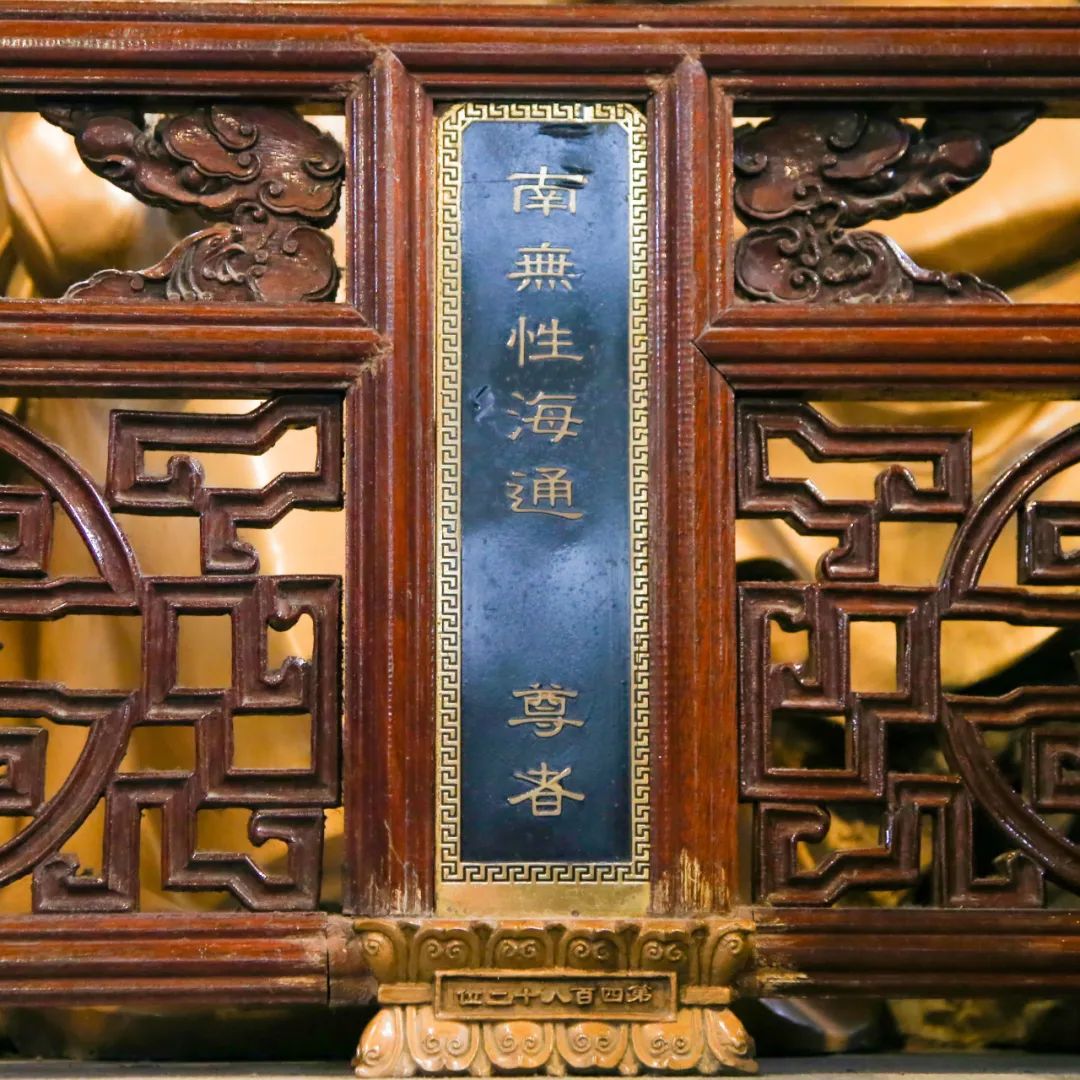 南無性海通 尊者
第四百八十二位